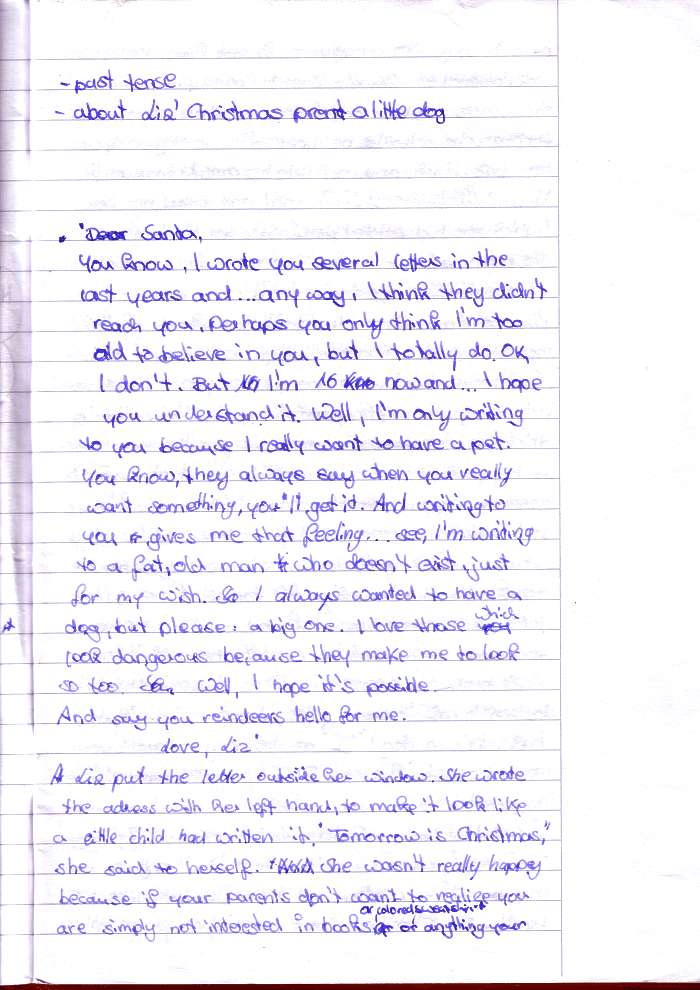 - past tense
- about Liz' Christmas present a little dog
"Dear Santa,
You know, I wrote you several letters in the
last years and... any way, I think they didn't
reach you. Perhaps you only think I'm too
old to believe in you, but I totally do. OK,
I don't. But I'm 16 now and... I hope
you understand it. Well, I'm only writing
to you because I really want to have a pet.
You know, they always say when you really
want something, you'll get it. And writing to
you gives me that feeling... see, I'm writing
to a fat, old man who doesn't exist, just
for my wish. So I always wanted to have a
dog, but please: a big one. I love those which
look dangerous because they make me to look
so too. Well, I hope it's possible.
And say you reindeers hello for me.
Love, Liz"
Liz put the letter outside her window. She wrote
the adress with her left hand, to make it look like
a little child had written it. "Tomorrow is Christmas,"
she said to herself. She wasn't really happy
because if your parents don't want to realize you
are simply not interested in books or colored sweatshirts or anything your